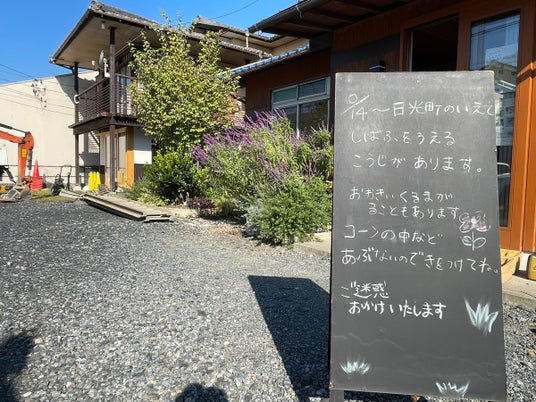 9/14~日光町のいえで
しばふをうえる
こうじがあります。
おおきいくるまが
くることもあります
コーンの中など
あぶないのできをつけてね。
ご迷惑
おかけいたします